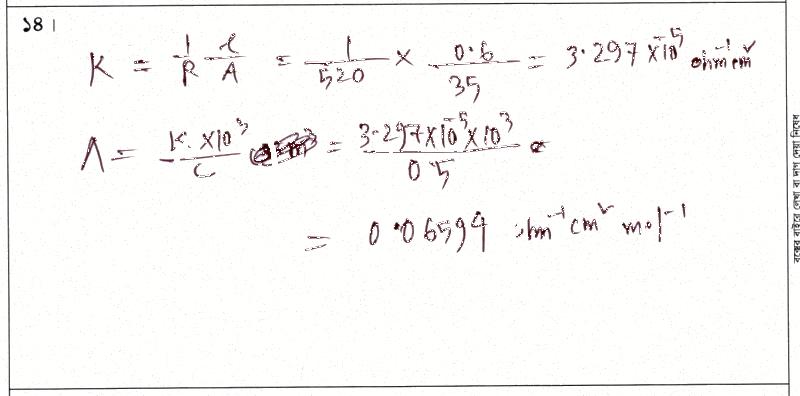 ১৪।
K = 1/R l/A = 1/520 × 0.6/35 = 3.297 × 10⁻⁵ ohm⁻¹ cm²
Λ = K × 10³/C = 3.297 × 10⁻⁵ × 10³/0.5
= 0.06594 ohm⁻¹ cm² mol⁻¹
বক্সের বাইরে লেখা বা দাগ দেয়া নিষেধ